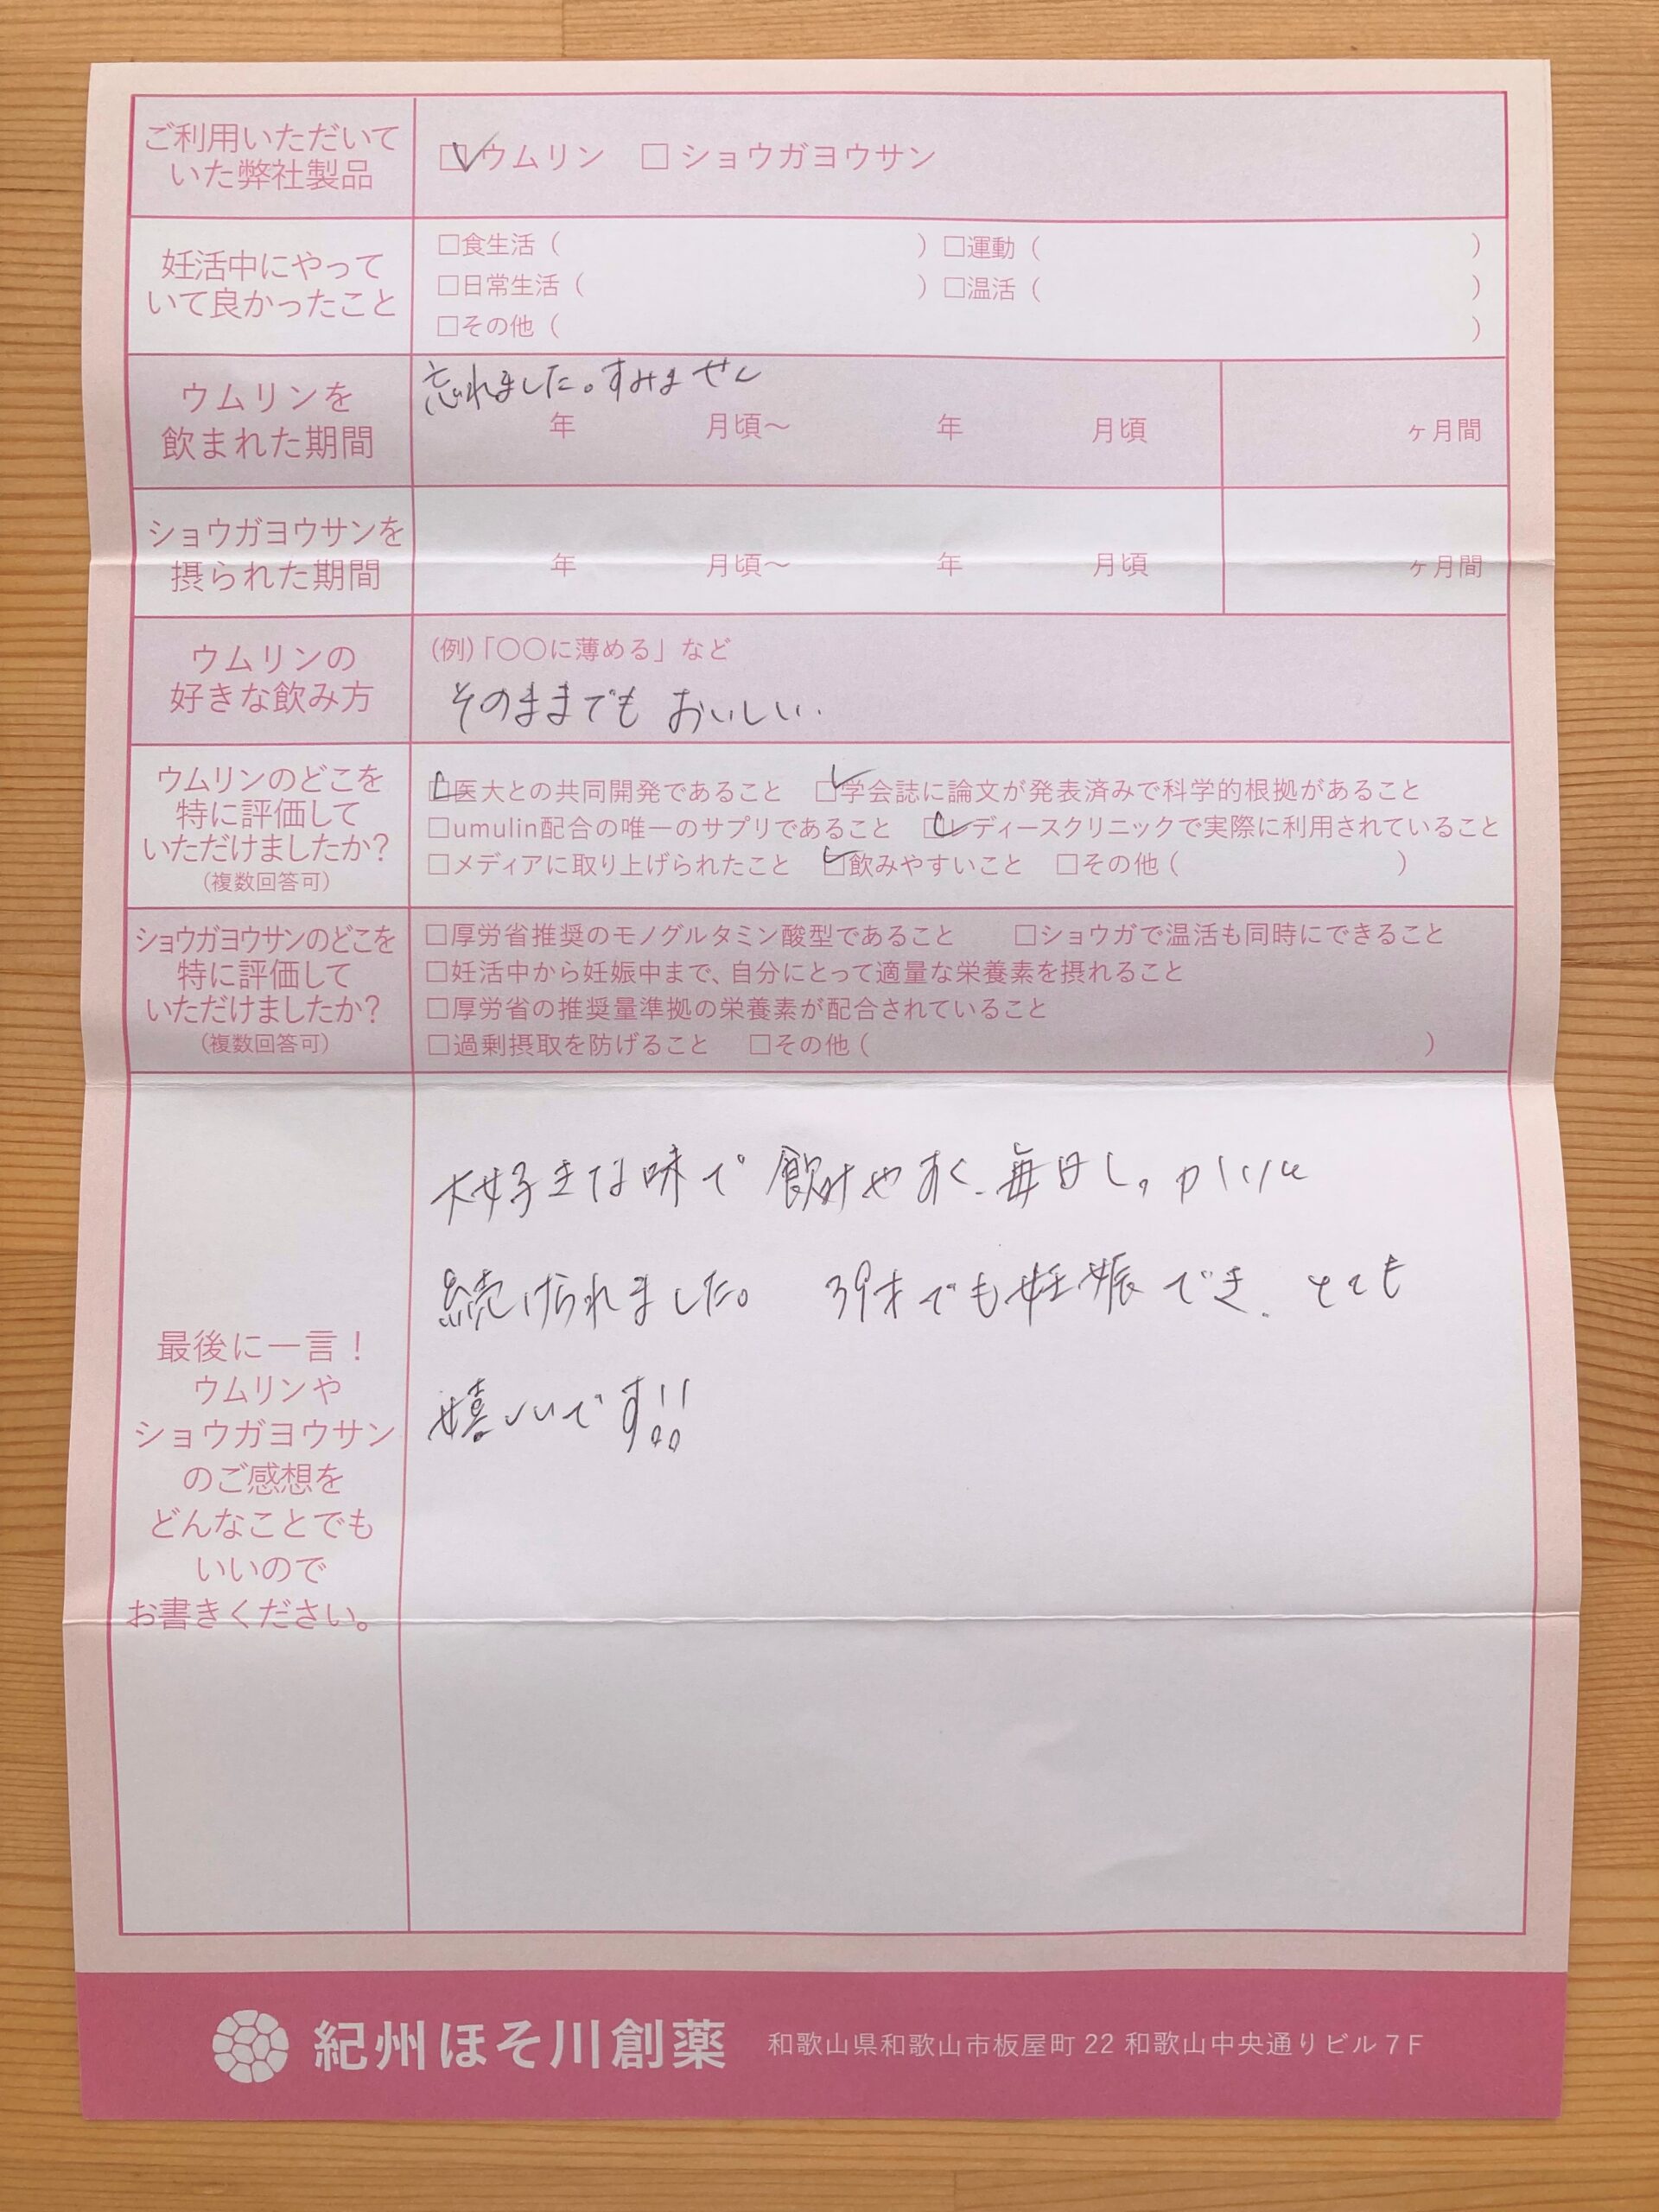 ご利用いただいて
いた弊社製品
□ウムリン □ショウガヨウサン
妊活中にやって
いて良かったこと
□食生活（ ）□運動（ ）
□日常生活（ ）□温活（ ）
□その他（ ）
ウムリンを
飲まれた期間
忘れました。すみません
年 月頃～ 年 月頃 ヶ月間
ショウガヨウサンを
摂られた期間
年 月頃～ 年 月頃 ヶ月間
ウムリンの
好きな飲み方
(例)「〇〇に薄める」など
そのままでも おいしい.
ウムリンのどこを
特に評価して
いただけましたか?
(複数回答可)
□医大との共同開発であること □学会誌に論文が発表済みで科学的根拠があること
□umulin配合の唯一のサプリであること □レディースクリニックで実際に利用されていること
□メディアに取り上げられたこと □飲みやすいこと □その他（ ）
ショウガヨウサンのどこを
特に評価して
いただけましたか?
(複数回答可)
□厚労省推奨のモノグルタミン酸型であること □ショウガで温活も同時にできること
□妊活中から妊娠中まで、自分にとって適量な栄養素を摂れること
□厚労省の推奨量準拠の栄養素が配合されていること
□過剰摂取を防げること □その他（ ）
最後に一言！
ウムリンや
ショウガヨウサン
のご感想を
どんなことでも
いいので
お書きください。
大好きな味で 飲みやすく、毎日
続けられました。 39才でも妊娠でき、とても
嬉しいです!!
紀州ほそ川創薬 和歌山県和歌山市板屋町 22 和歌山中央通りビル 7 F